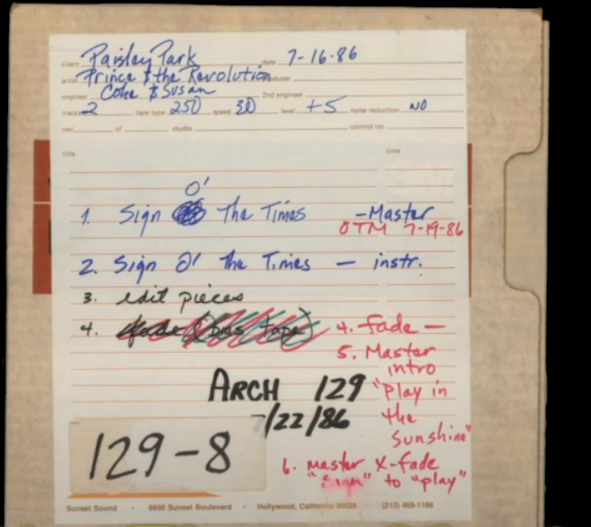 client Paisley Park date 7-16-86
artist Prince & the Revolution producer
engineer Coke & Susan 2nd engineer
tracks 2 tape type 250 speed 30 level +5 noise reduction NO
reel of studio control no.
title time
O'
1. Sign The Times - Master
OTM 7-19-86
2. Sign O' The Times - instr.
3. edit pieces
4. fade (bus tape) 4. Fade -
5. Master
intro
ARCH 129 "Play in
7/22/86 the
Sunshine"
129-8
6. master X-fade
"Sign" to "play"
Sunset Sound • 6650 Sunset Boulevard • Hollywood, California 90028 (213) 469-1186